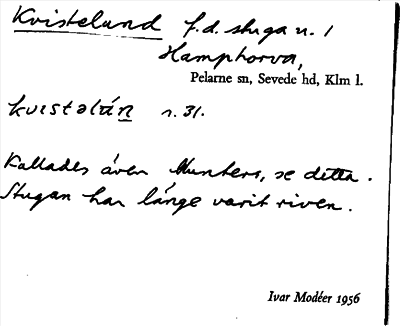 Kvistelund f.d. stuga u. 1
Hamphorva,
Pelarne sn, Sevede hd, Klm l.
kvɪstəlún r. 31.
Kallades även Munters, se detta.
Stugan har länge varit riven.
Ivar Modéer 1956